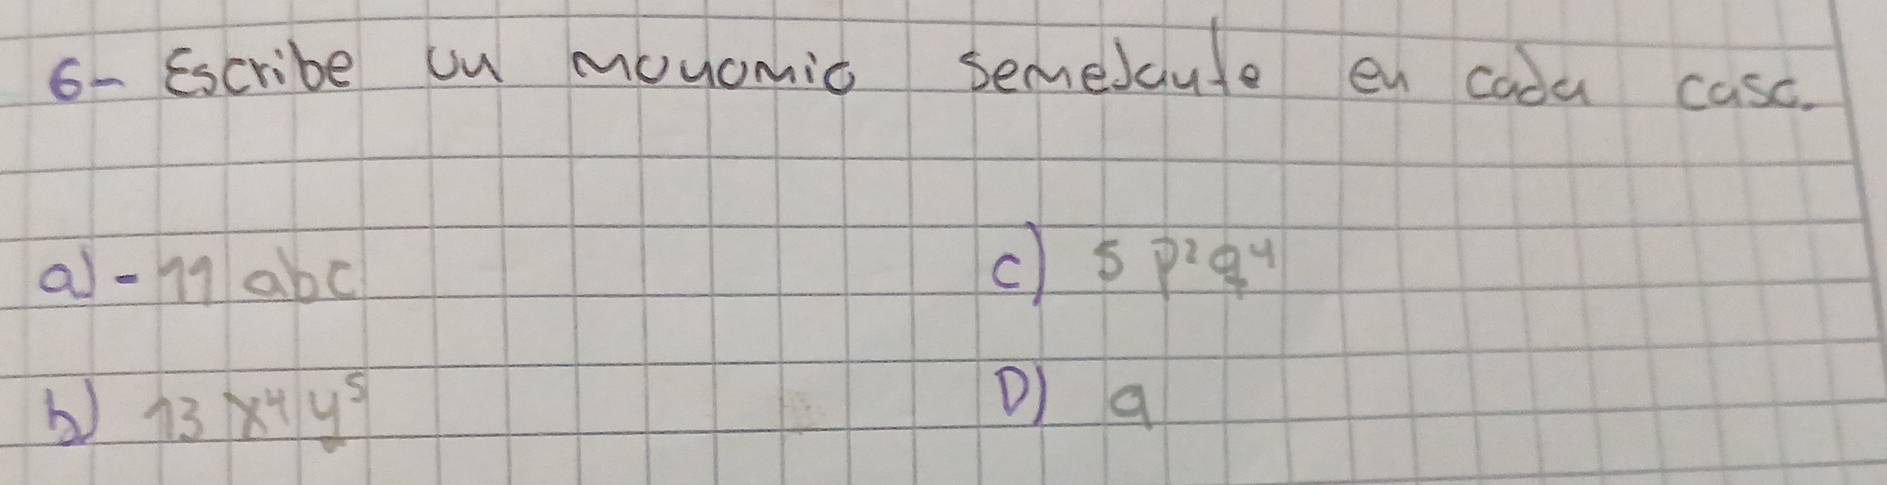 6- Escribe un monomio semejante en cada caso.
a) -11 abc
c) 5 p²q⁴
b) 13 x⁴y⁵
D) 9